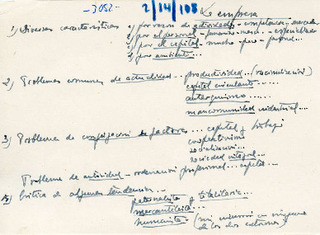 -3052- 2/14/108 La empresa
1) Diversas características a) por razón de actividades - competencia, mercado
b) por el personal - femenino - masc - especializado
c) por el capital - mucho - poco -
d) por ambiente ...
2) Problemas comunes de actualidad ... productividad .. (racionalización)
capital circulante ...
autarquismo ...
mancomunidad industrial ...
3) Problema de conjugación de factores .... capital y trabajo
cooperativismo
socialización ...
sociedad
Problema de autoridad - ordenación profesional .. capital ...
5) Crítica de algunas tendencias ...
paternalista y totalitaria ...
mercantilista
humanista (ni incurrir en ninguno
de los dos extremos)